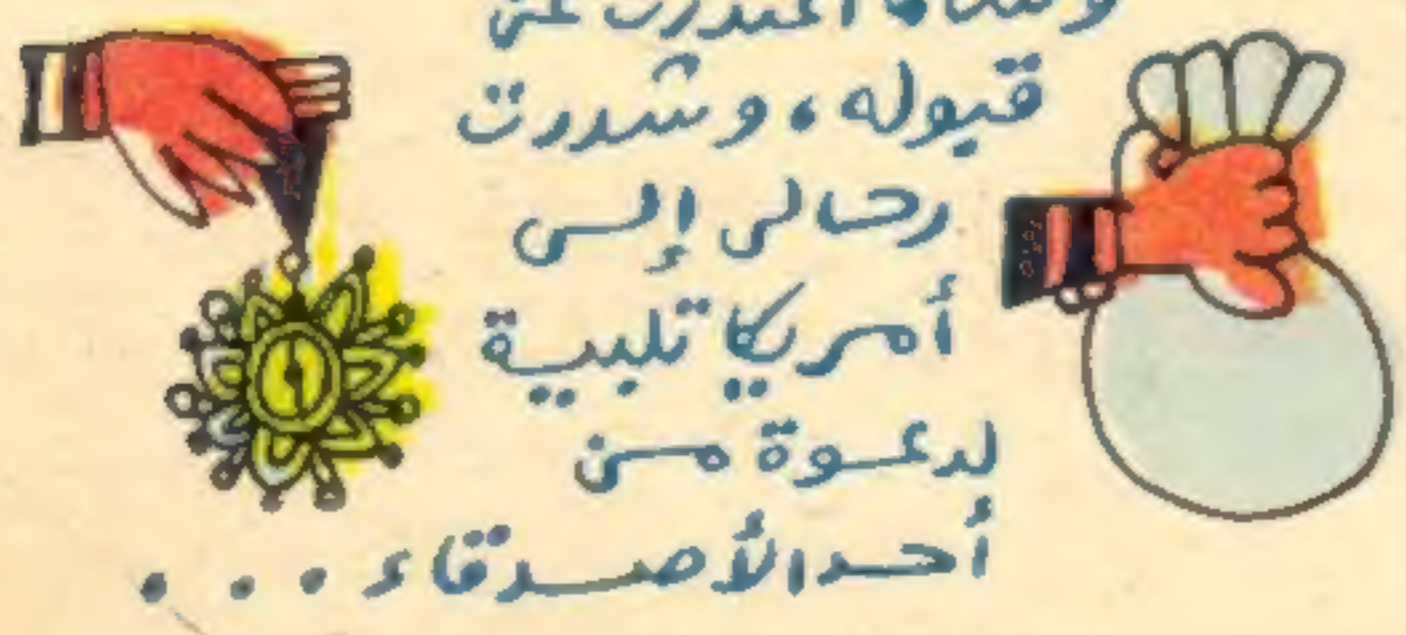 اعتذرت عن
قبوله، وشددت
رحالى إلى
أمريكا تلبية
لدعوة من
أحد الأصدقاء...